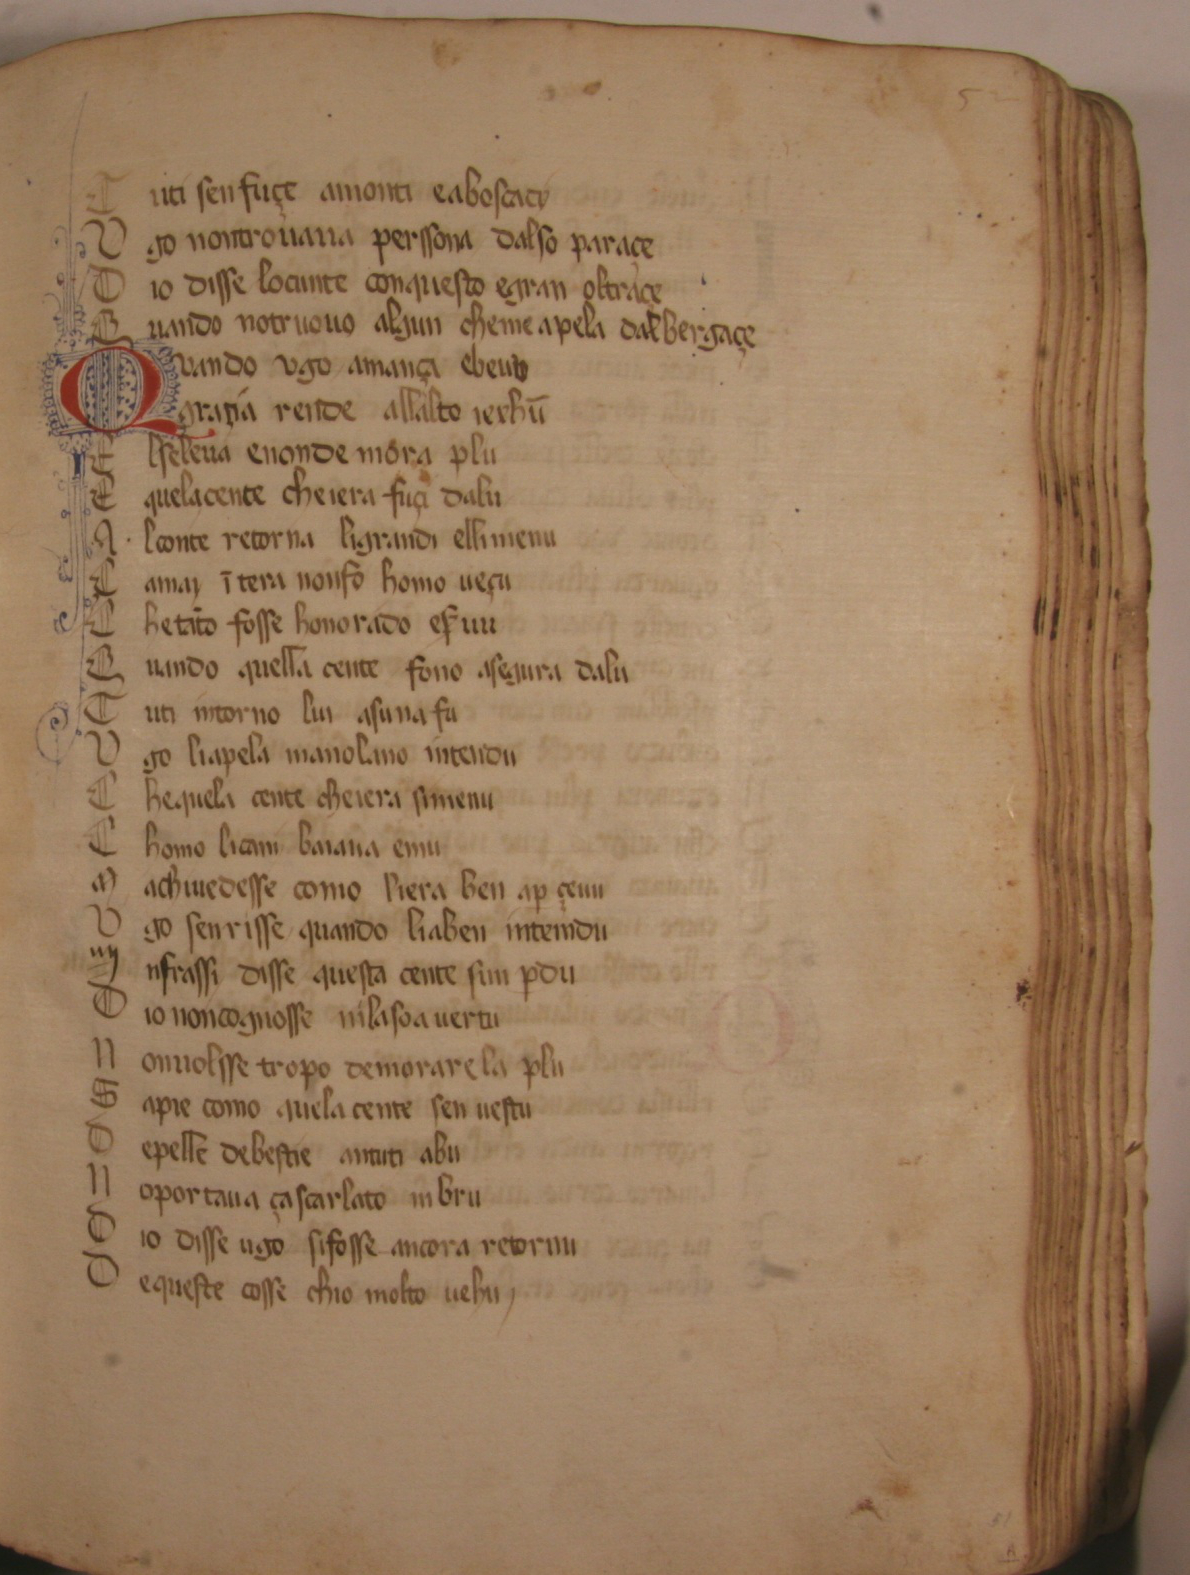 52
T uti sen fuçe amonti eaboscaty
V go nontrouaua perssona dalso paraçe
D io disse locunte conquesto egran oltraçe
Q uando notruouo algun cheme apela dalbergaçe
Q vando vgo amançà ebeuo
graçia rende allalto iexhu̅
E lseleua enonde mora plu
E quelacente cheiera fuçi dalu
A lconte retorna ligrandi ellimenu
C amay i̅ tera nonfo homo ueçu
C heta̅to fosse honorado eseruu
Q uando quella cente fono asegura dalu
T uti intorno lui asuna fu
V go liapela manolano intendu
C hequela cente cheiera simenu
C homo licani baiaua emu
M achiuedesse como liera ben ap çeuu
V go senrisse quando liaben inteindu
nfrassi disse questa cente sun pdu
D io noncognosse nilasoa uertu
N onuolsse tropo demorare la plu
S apie como quela cente sen uestu
D epelle debestie antuti abu
N oportaua ça scarlato inbru
D io disse ugo sifosse ancora retornu
D equeste cosse chio molto uehu